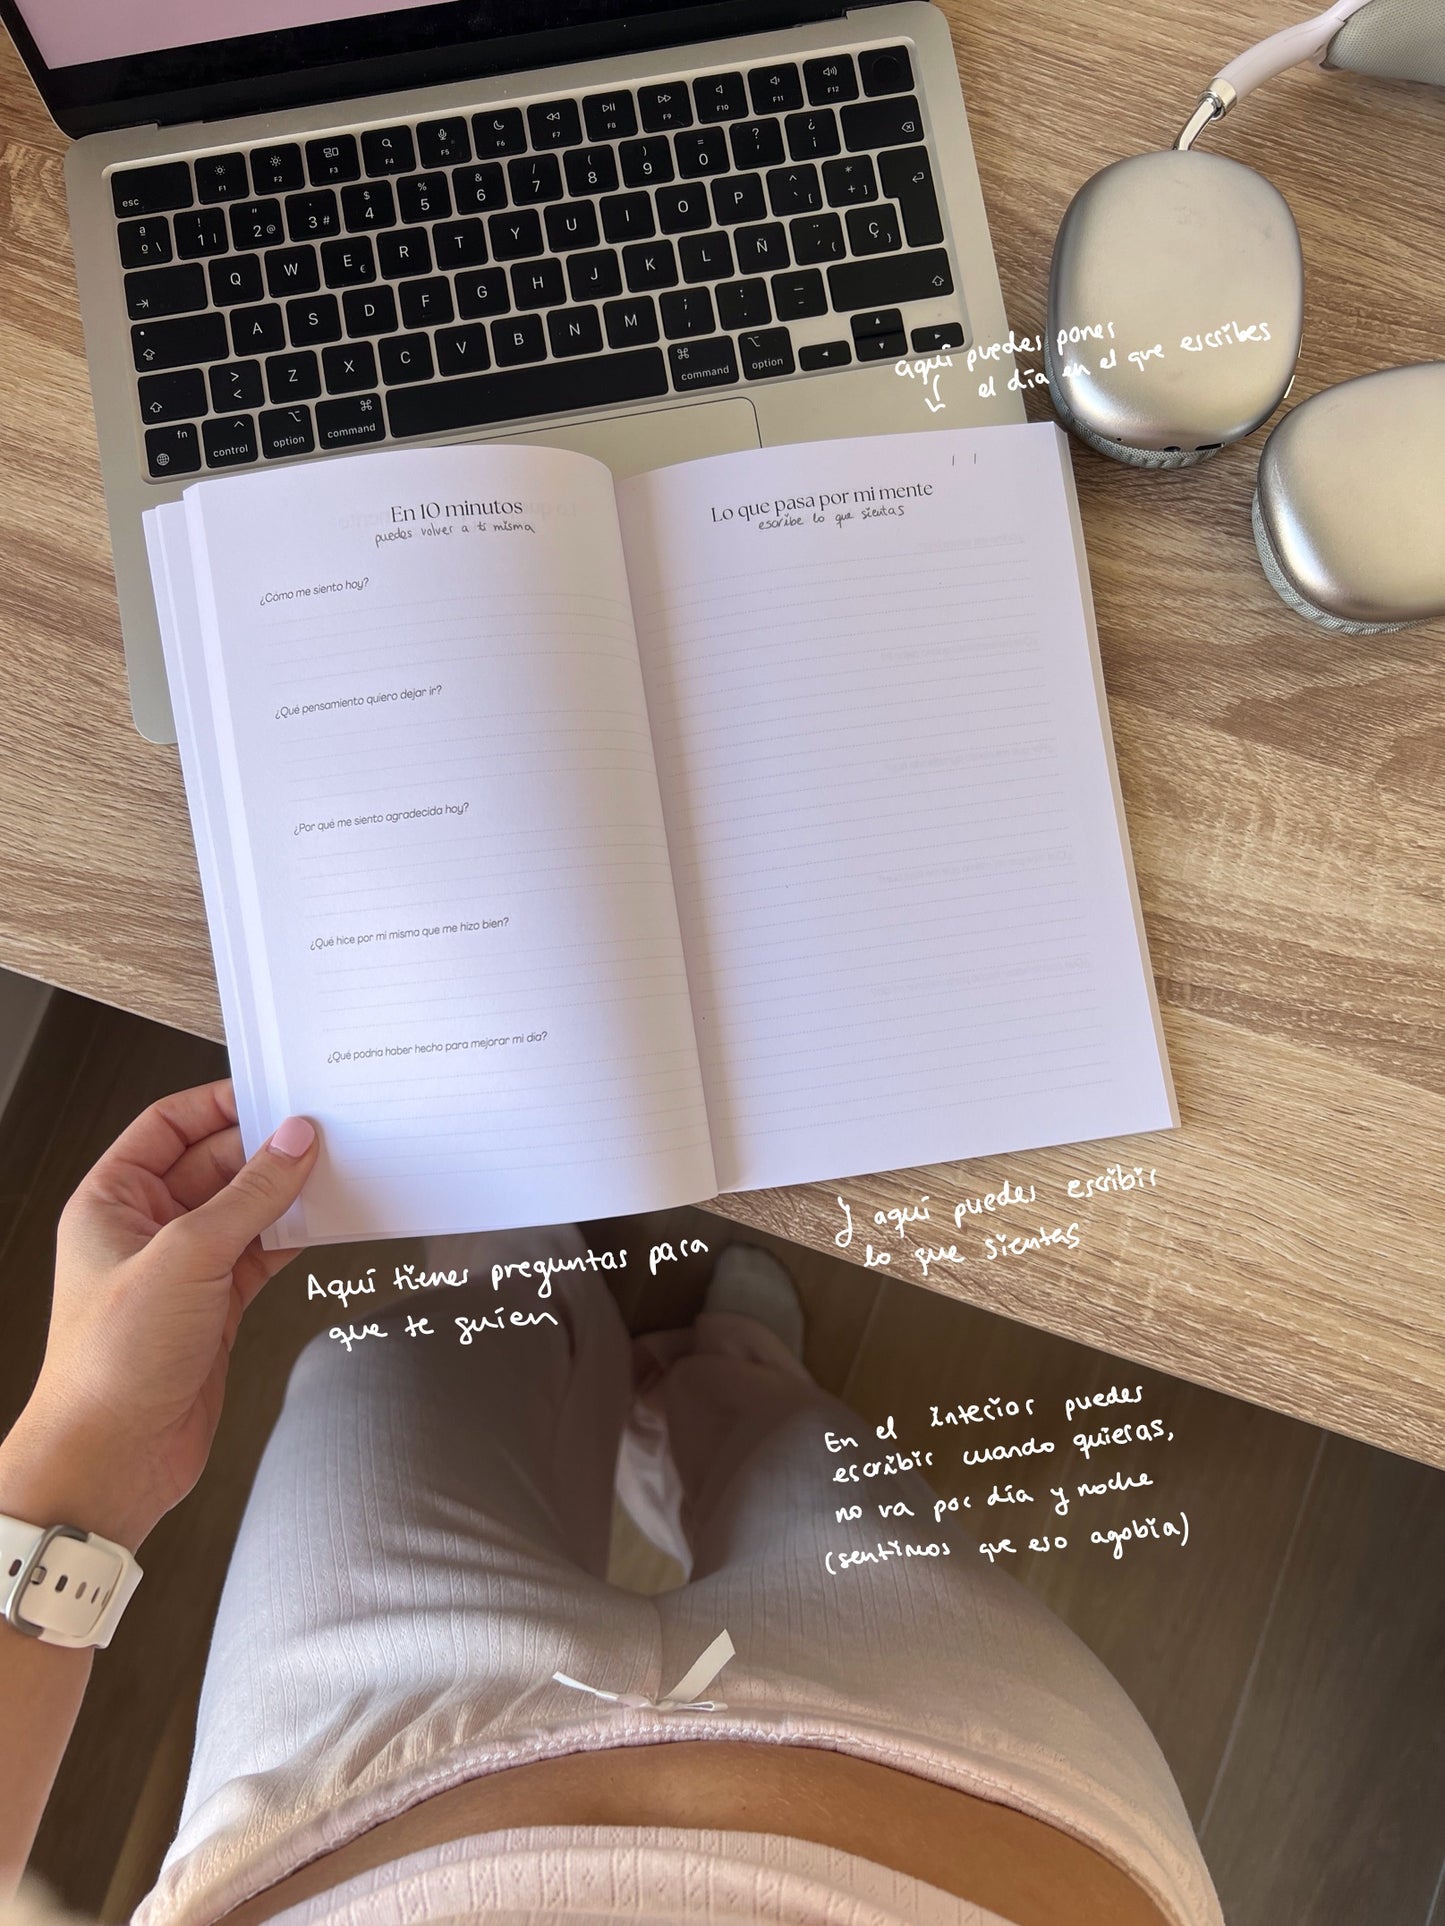 esc F1 F2 F3 F4 F5 F6 F7 F8 F9 F10 F11 F12
ª º \ ! 1 | " 2 @ · 3 # $ 4 % 5 & 6 / 7 ( 8 ) 9 = 0 ? ' ¿ ¡
Q W E € R T Y U I O P ^ ` [ * + ]
A S D F G H J K L Ñ ¨ ´ { Ç }
> < Z X C V B N M ; , : . _ -
fn control option command command option
aquí puedes poner
el día en el que escribes
En 10 minutos
puedes volver a ti misma
¿Cómo me siento hoy?
¿Qué pensamiento quiero dejar ir?
¿Por qué me siento agradecida hoy?
¿Qué hice por mi misma que me hizo bien?
¿Qué podría haber hecho para mejorar mi día?
/ /
Lo que pasa por mi mente
escribe lo que sientas
Aquí tienes preguntas para
que te guíen
Y aquí puedes escribir
lo que sientas
En el interior puedes
escribir cuando quieras,
no va por día y noche
(sentimos que eso agobia)